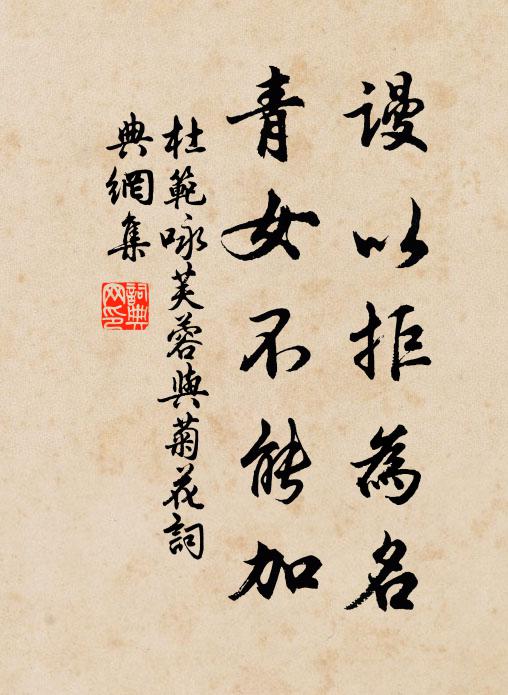 謾以拒為名
青女不能加
杜範咏芙蓉與菊花詞
典網集
詞典網印